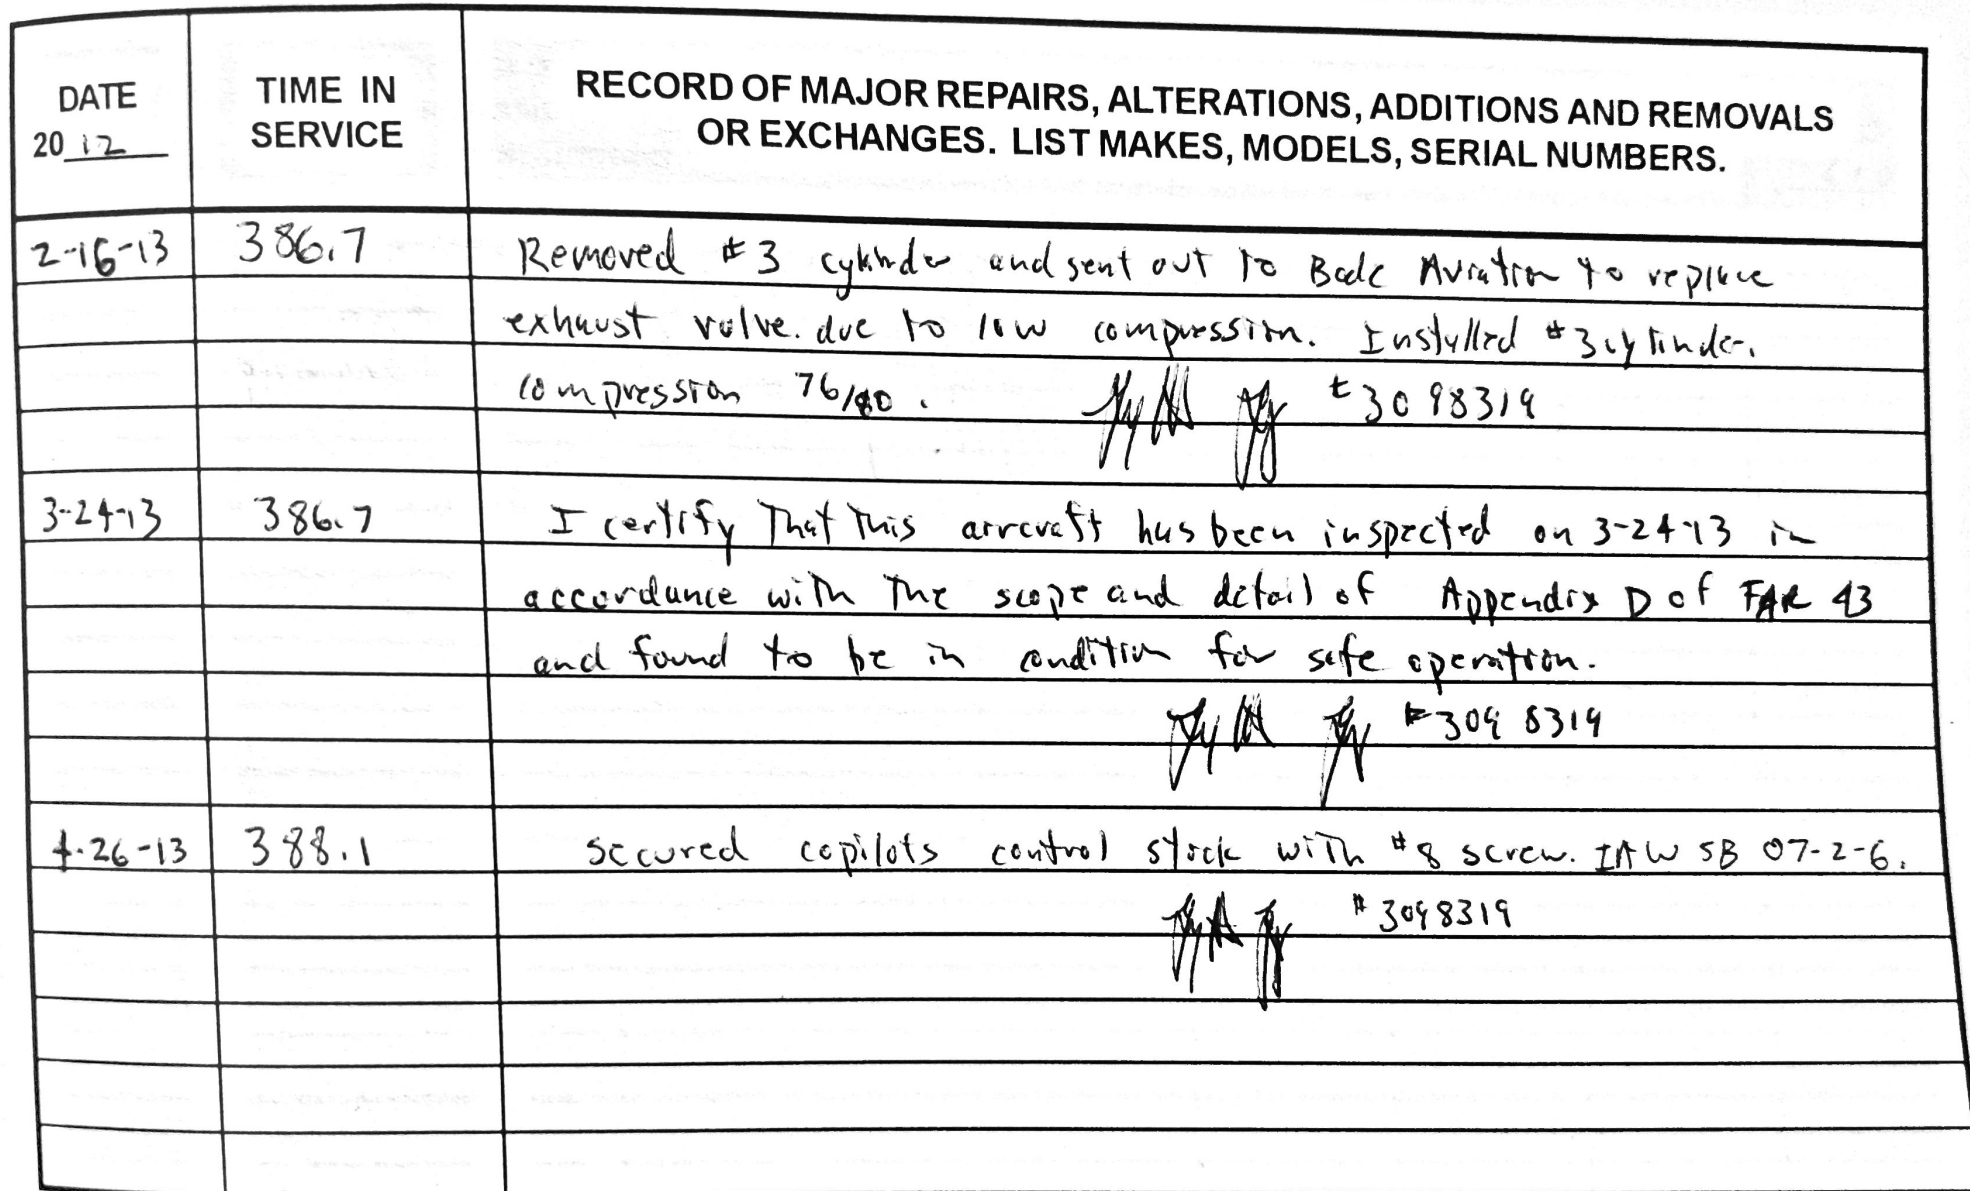 DATE
20 12
TIME IN
SERVICE
RECORD OF MAJOR REPAIRS, ALTERATIONS, ADDITIONS AND REMOVALS
OR EXCHANGES. LIST MAKES, MODELS, SERIAL NUMBERS.
2-16-13 386.7 Removed #3 cylinder and sent out to Bode Aviation to replace
exhaust valve. due to low compression. Installed #3 cylinder.
compression 76/80. #3098319
3-24-13 386.7 I certify That This aircraft has been inspected on 3-24-13 in
accordance with The scope and detail of Appendix D of FAR 43
and found to be in condition for safe operation.
#3098319
4-26-13 388.1 secured copilots control stick with #8 screw. IAW SB 07-2-6.
#3098319